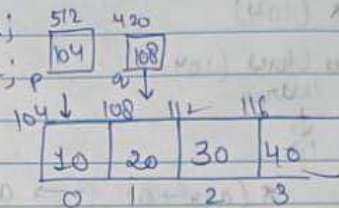 ; 512 420
104 108
; p q
104 108 112 116
10 20 30 40
0 1 2 3